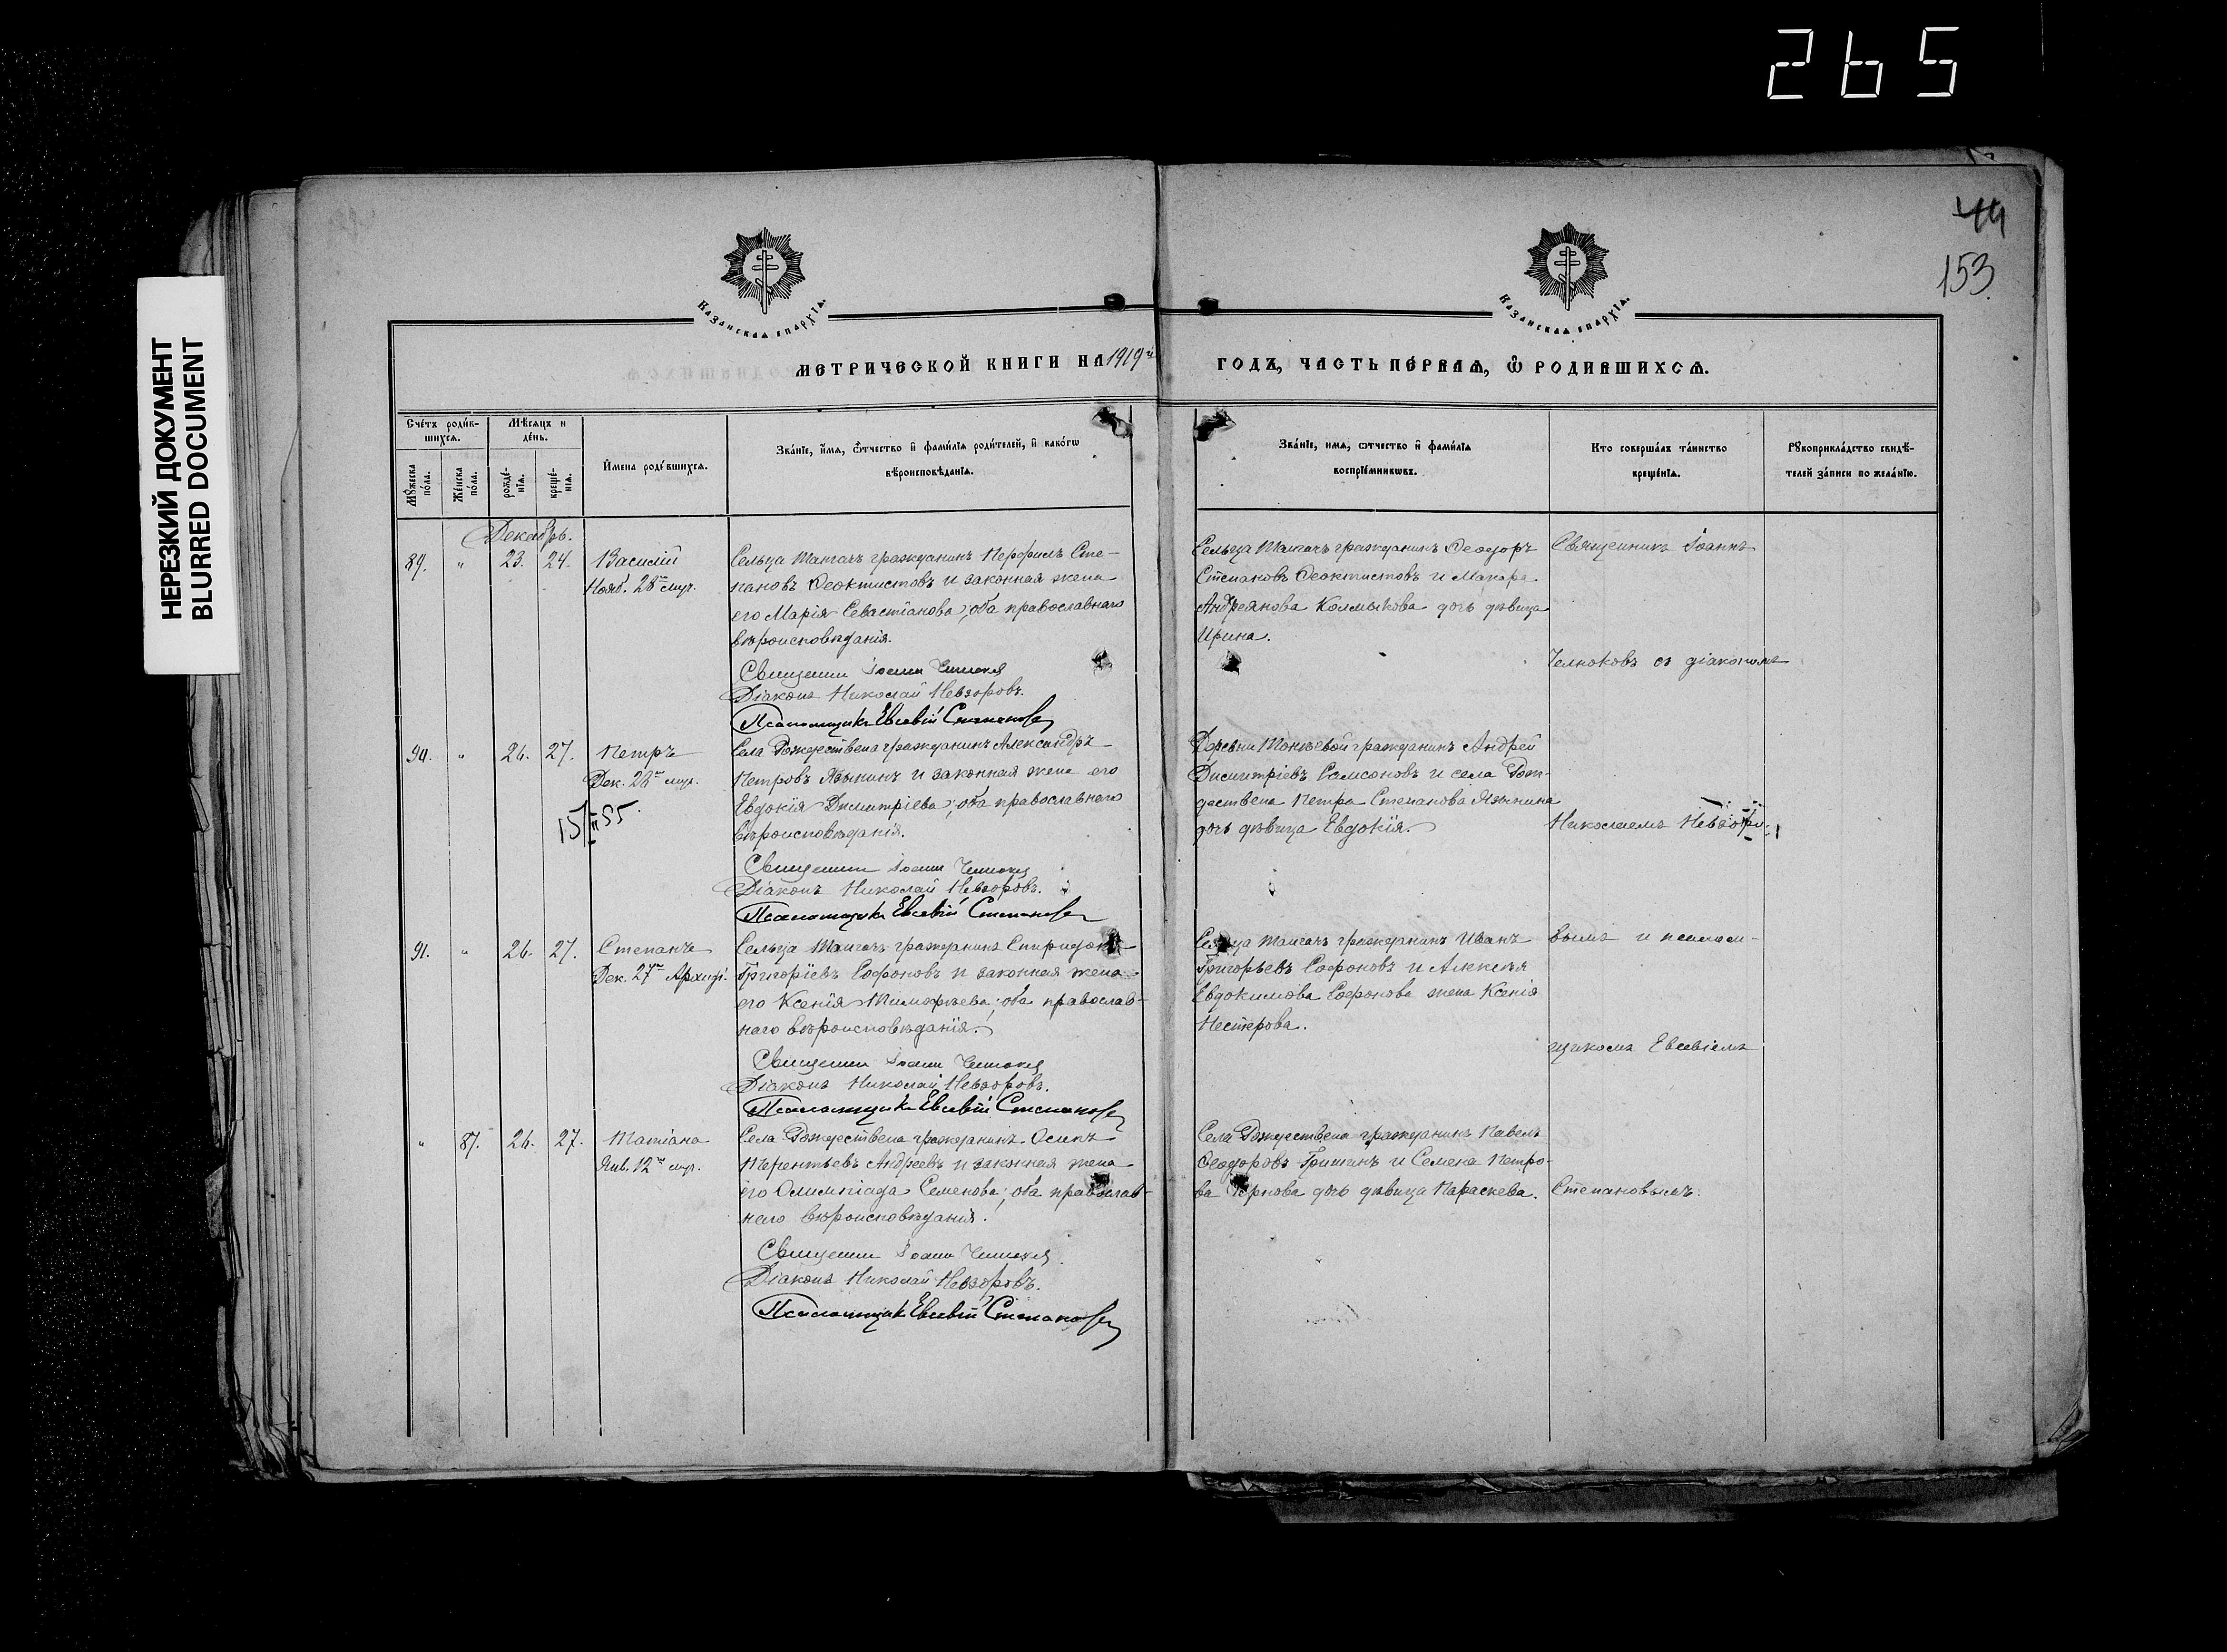 265
НЕРЕЗКИЙ ДОКУМЕНТ
BLURRED DOCUMENT
44
153
Казанская епархїѧ.
Казанская епархїѧ.
МЕТРИЧЕСКОЙ КНИГИ НА 1919й ГОДЪ, ЧАСТЬ ПЕРВАѦ, Ѡ РОДИВШИХСѦ.
Сче́тъ роди́вшихсѧ.
Мѣ́сѧцъ и де́нь.
Мꙋ́жеска по́ла.
Же́нска по́ла.
рожде́нїѧ.
креще́нїѧ.
И́мена роди́вшихсѧ.
Зва́нїе, и҆́мѧ, ѻ҆́тчество и҆ фами́лїѧ роди́телей, и҆ како́гѡ
вѣроисповѣ́данїѧ.
Зва́нїе, имѧ, ѻтчество и҆ фами́лїѧ
воспрїе́мникѡвъ.
Кто соверша́лъ та́инство
креще́нїѧ.
Рꙋкоприкла́дство свидѣ́-
телей за́писи по жела́нїю.
Декабрь.
89. " 23. 24. Василій
Нояб. 28го муч.
Сельца Тангачъ гражданинъ Перфилъ Сте-
пановъ Ѳеоктистовъ и законная жена
его Марія Севастіанова; оба православнаго
вѣроисповѣданія.
Священникъ Іоаннъ Челноковъ
Діаконъ Николай Невзоровъ.
Псаломщикъ Евсевій Степановъ
Сельца Тангачъ гражданинъ Ѳеодоръ
Степановъ Ѳеоктистовъ и Макара
Андреянова Колмыкова дочь дѣвица
Ирина.
Священникъ Іоаннъ
Челноковъ съ діакономъ
90. " 26. 27. Петръ
Дек. 28го муч.
15/II 55.
Села Рождествена гражданинъ Александръ
Петровъ Языкинъ и законная жена его
Евдокія Димитріева; оба православнаго
вѣроисповѣданія.
Священникъ Іоаннъ Челноковъ
Діаконъ Николай Невзоровъ.
Псаломщикъ Евсевій Степановъ
Деревни гражданинъ Андрей
Димитріевъ Самсоновъ и села Рож-
дествена Петра Степанова Языкина
дочь дѣвица Евдокія.
Николаемъ Невзоро-
91. " 26. 27. Степанъ
Дек. 27го Архиді.
Сельца Тангачъ гражданинъ Спиридонъ
Григоріевъ Софоновъ и законная жена
его Ксенія Тимофѣева; оба православ-
наго вѣроисповѣданія.
Священникъ Іоаннъ Челноковъ
Діаконъ Николай Невзоровъ.
Псаломщикъ Евсевій Степановъ
Сельца Тангачъ гражданинъ Иванъ
Григорьевъ Софоновъ и Алексѣя
Евдокимова Софонова жена Ксенія
Нестерова.
вымъ и псалом-
щикомъ Евсевіемъ
" 87. 26. 27. Татіана
Янв. 12го муч.
Села Рождествена гражданинъ Осипъ
Терентьевъ Андреевъ и законная жена
его Олимпіада Семенова; оба православ-
наго вѣроисповѣданія.
Священникъ Іоаннъ Челноковъ
Діаконъ Николай Невзоровъ.
Псаломщикъ Евсевій Степановъ
Села Рождествена гражданинъ Павелъ
Ѳеодоровъ Гришинъ и Семена Петро-
ва дочь дѣвица Параскева.
Степановымъ.